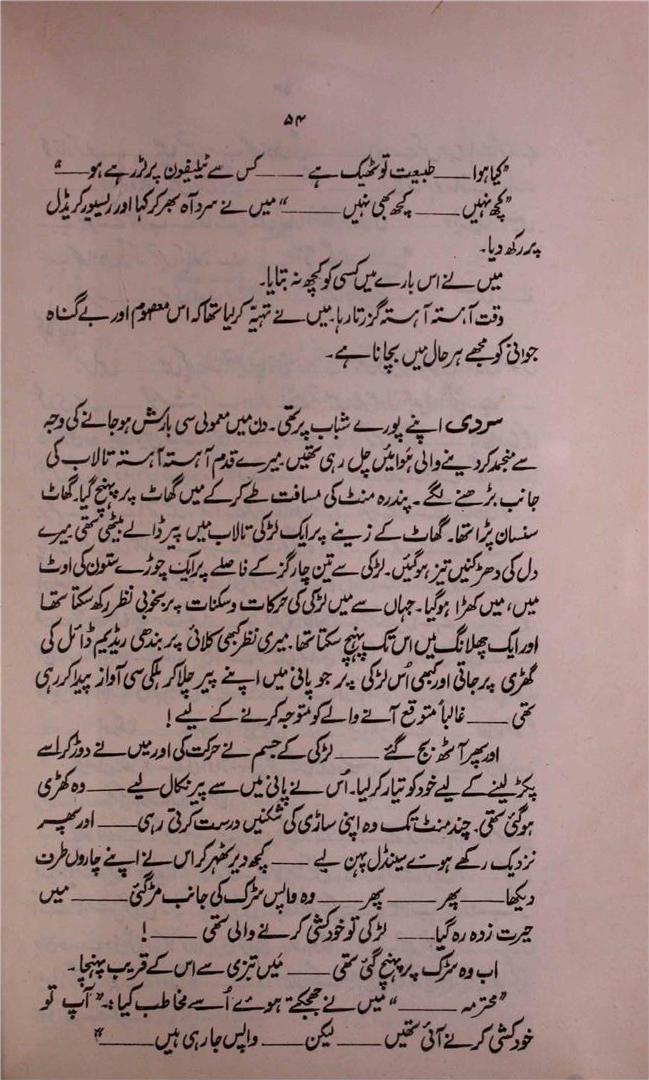 ۵۴
”کیا ہوا ــــ طبیعت تو ٹھیک ہے ــــ کس سے ٹیلیفون پر لڑ رہے ہو ــــ“
”کچھ نہیں ــــ کچھ بھی نہیں ــــ“ میں نے سرد آہ بھر کر کہا اور ریسیور کریڈل
پر رکھ دیا۔
میں نے اس بارے میں کسی کو کچھ نہ بتایا۔
وقت آہستہ آہستہ گزرتا رہا۔ میں نے تہیہّ کر لیا تھا کہ اس معصوم اور بے گناہ
جوانی کو مجھے ہر حال میں بچانا ہے۔
سردی اپنے پورے شباب پر تھی۔ دن میں معمولی سی بارش ہو جانے کی وجہ
سے منجمد کر دینے والی ہوائیں چل رہی تھیں۔ میرے قدم آہستہ آہستہ تالاب کی
جانب بڑھنے لگے۔ پندرہ منٹ کی مسافت طے کر کے میں گھاٹ پر پہنچ گیا۔ گھاٹ
سنسان پڑا تھا۔ گھاٹ کے زینے پر ایک لڑکی تالاب میں پیر ڈالے بیٹھی تھی میرے
دل کی دھڑکنیں تیز ہو گئیں۔ لڑکی سے تین چار گز کے فاصلے پر ایک چوڑے ستون کی اوٹ
میں، میں کھڑا ہو گیا۔ جہاں سے میں لڑکی کی حرکات و سکنات پر بخوبی نظر رکھ سکتا تھا
اور ایک چھلانگ میں اس تک پہنچ سکتا تھا۔ میری نظر کبھی کلائی پر بندھی ریڈیم ڈائل کی
گھڑی پر جاتی اور کبھی اُس لڑکی پر جو پانی میں اپنے پیر چلا کر ہلکی سی آواز پیدا کر رہی
تھی ــــ غالباً متوقع آنے والے کو متوجہ کرنے کے لیے !
اور پھر آٹھ بج گئے ــــ لڑکی کے جسم نے حرکت کی اور میں نے دوڑ کر اسے
پکڑ لینے کے لیے خود کو تیار کر لیا۔ اُس نے پانی میں سے پیر نکال لیے ــــ وہ کھڑی
ہو گئی تھی۔ چند منٹ تک وہ اپنی ساڑی کی شکنیں درست کرتی رہی ــــ اور پھر
نزدیک رکھے ہوئے سینڈل پہن لیے ــــ کچھ دیر ٹھہر کر اس نے اپنے چاروں طرف
دیکھا ــــ پھر ــــ پھر ــــ وہ واپس سڑک کی جانب مڑ گئی ــــ میں
حیرت زدہ رہ گیا ــــ لڑکی تو خودکشی کرنے والی تھی ــــ !
اب وہ سڑک پر پہنچ گئی تھی ــــ میں تیزی سے اس کے قریب پہنچا۔
”محترمہ ــــ“ میں نے جھجکتے ہوئے اُسے مخاطب کیا :۔ ”آپ تو
خودکشی کرنے آئی تھیں ــــ لیکن ــــ واپس جا رہی ہیں ــــ“